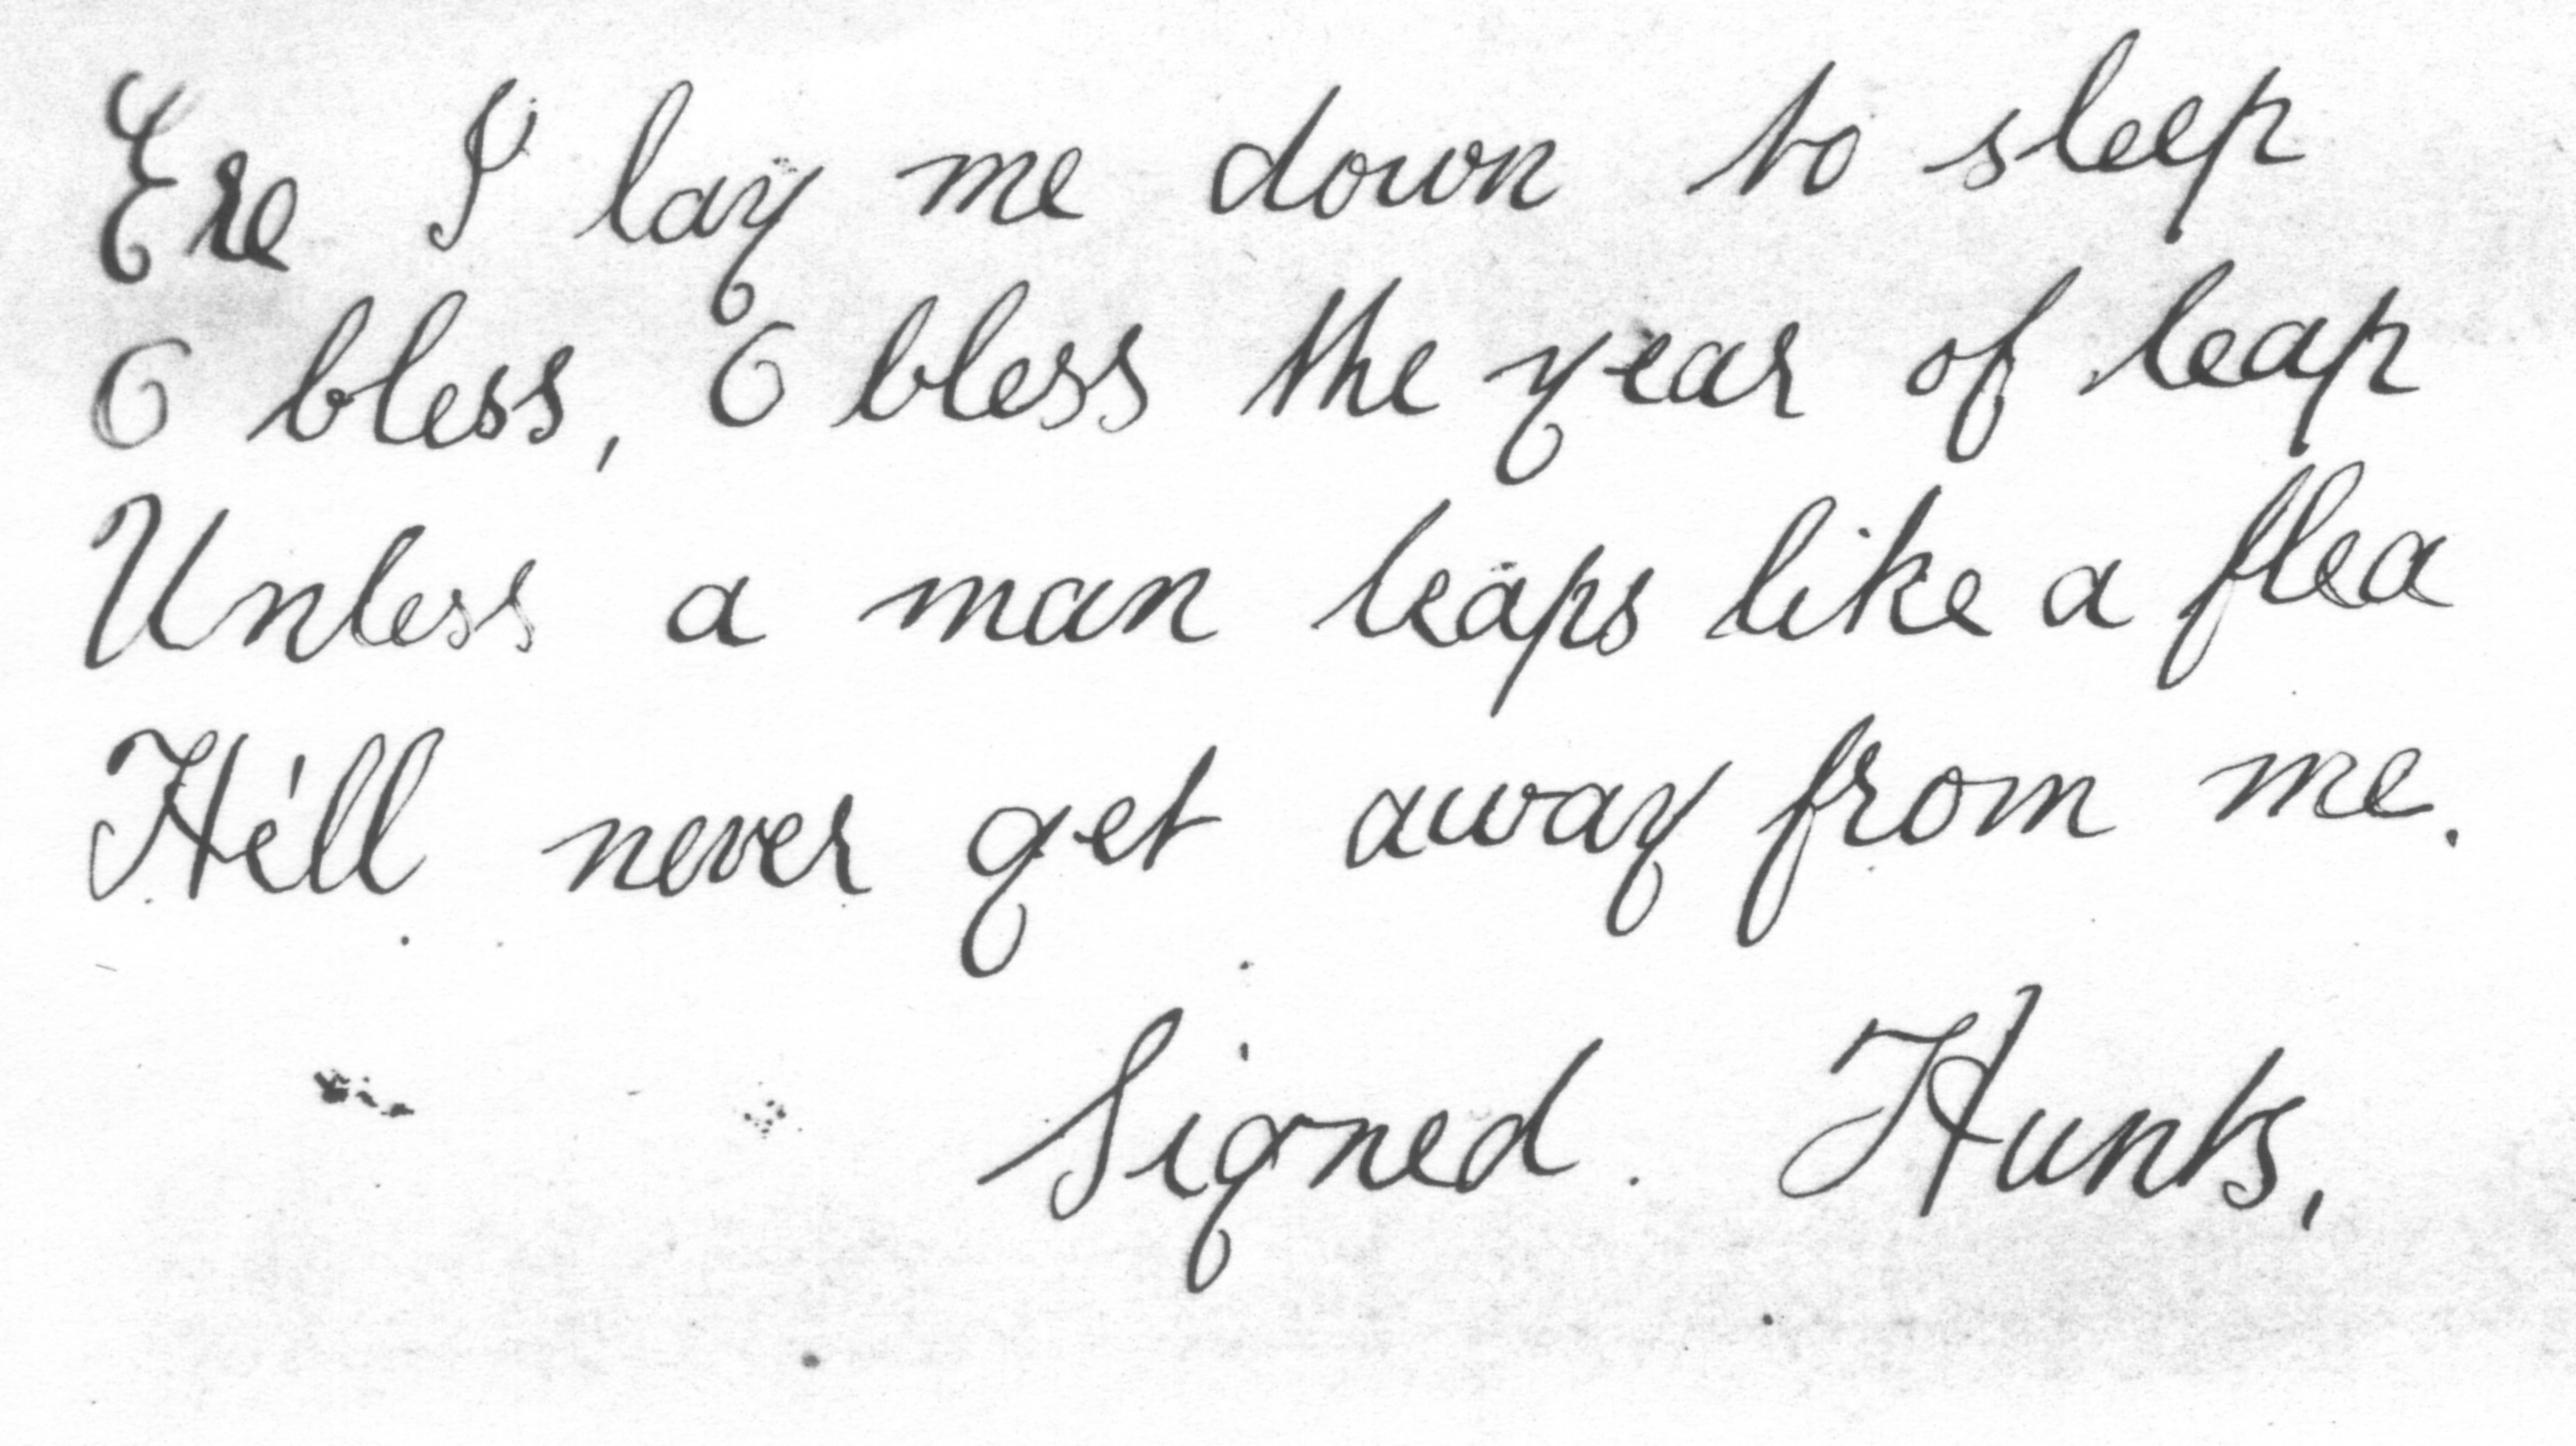 Ere I lay me down to sleep
O bless, O bless the year of leap
Unless a man leaps like a flea
He'll never get away from me.
Signed. Hunts,